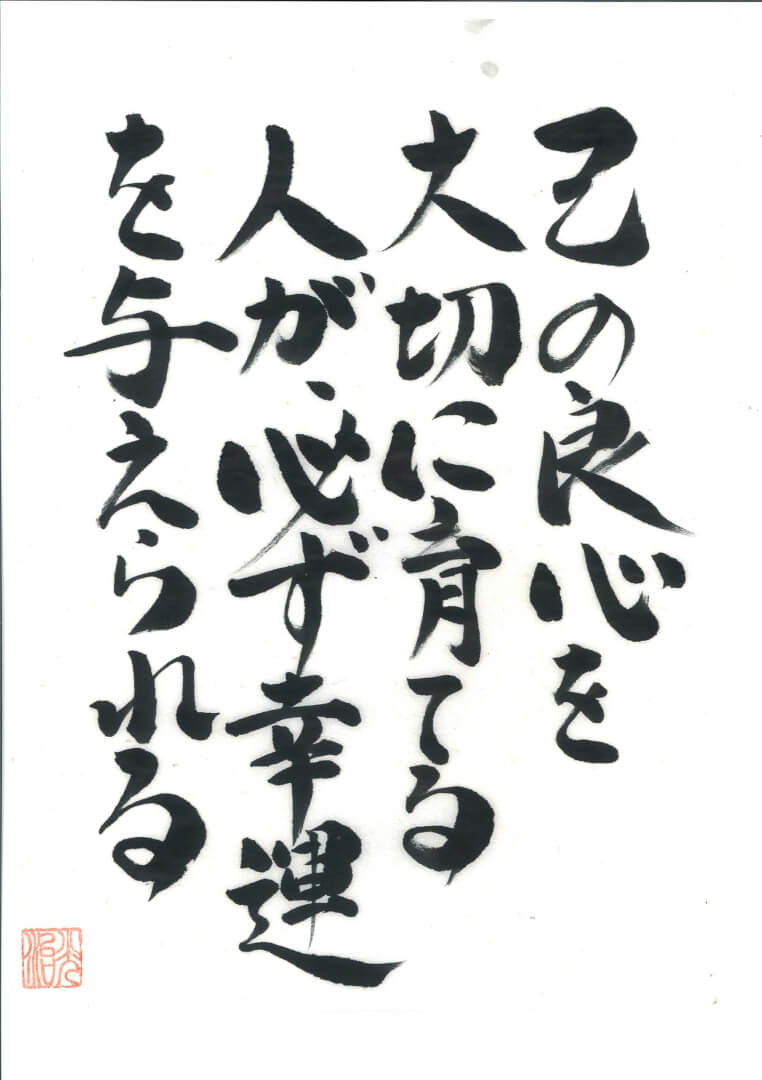 己の良心を
大切に育てる
人が、必ず幸運
を与えられる